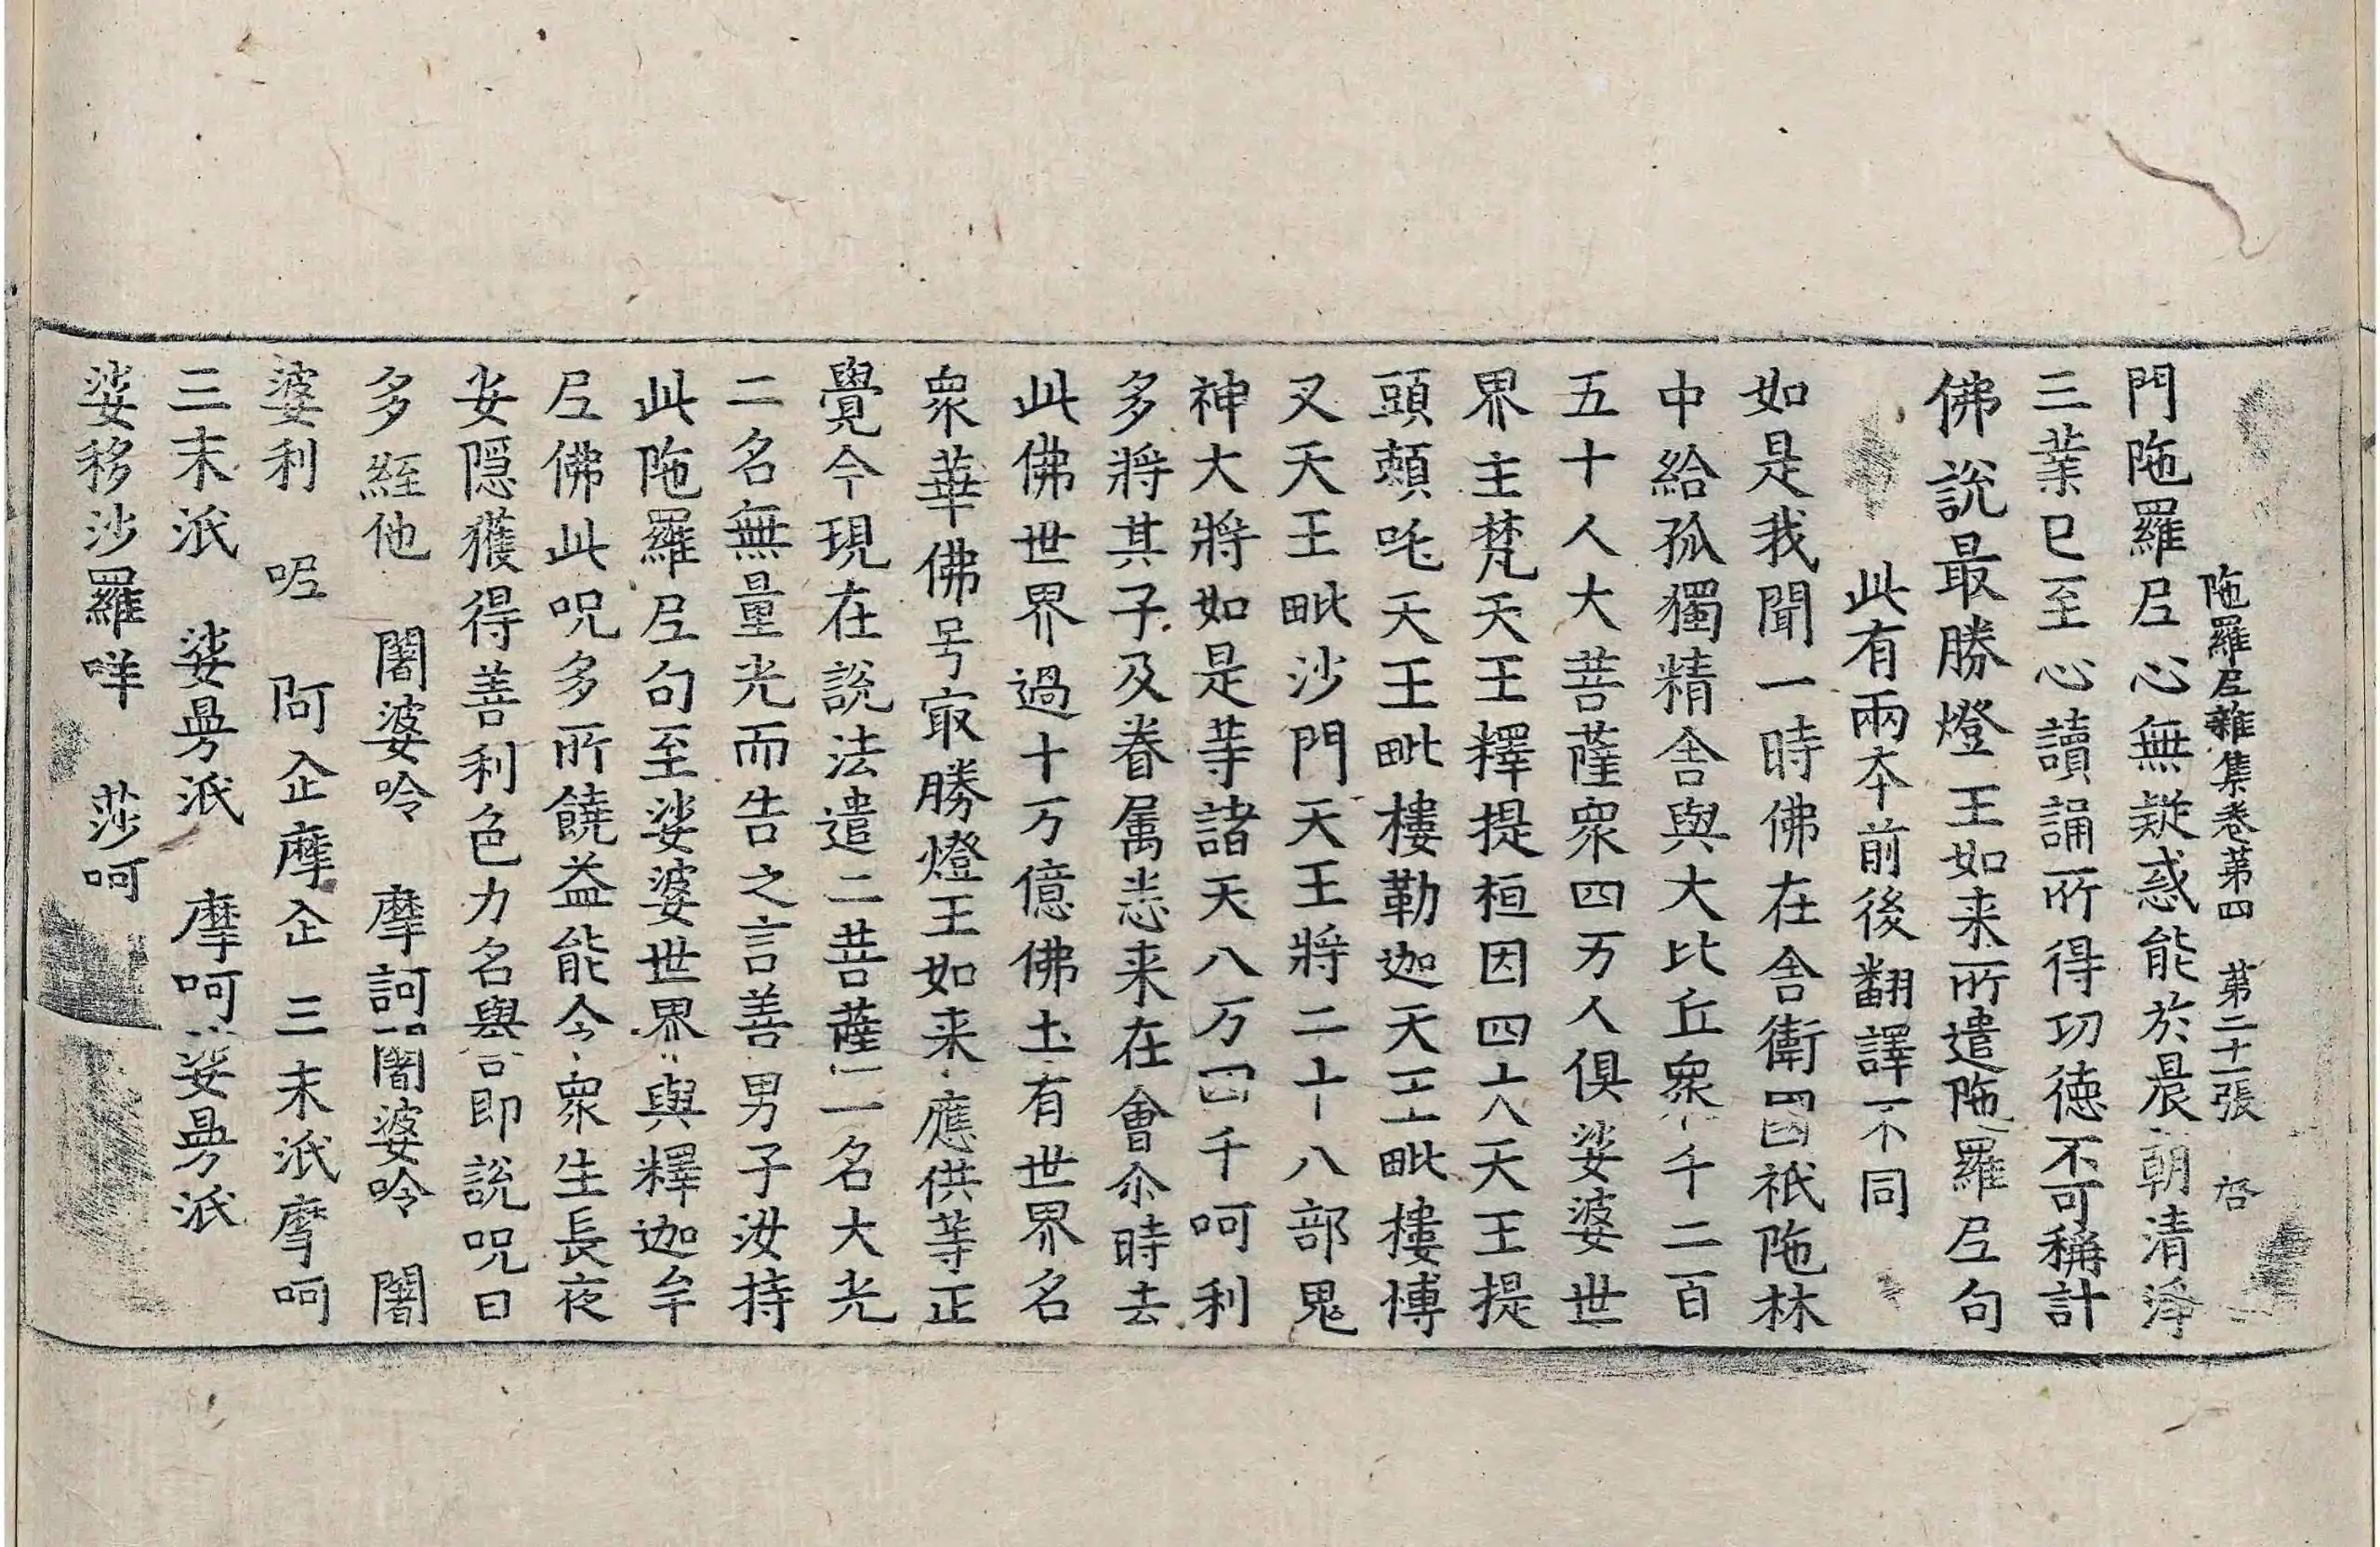 陁羅𡰱雜集卷苐四　苐二十一張　啓
門陁羅𡰱心無疑惑能於晨朝清淨
三業已至心讀誦所得㓛德不可稱計
佛說最勝燈王如来所遣陁羅𡰱句
此有兩夲前後翻譯不同
如是我聞一時佛在舍衛國祇陁林
中給孤獨精舍與大比丘衆千二百
五十人大菩薩衆四万人俱娑婆世
界主梵天王釋提桓因四天王提
頭頼吒天王毗樓勒迦天王毗樓博
叉天王毗沙門天王將二十八部鬼
神大將如是䓁諸天八万四千呵利
多將其子及眷属悉来在會尒時去
此佛世界過十万億佛土有世界名
衆華佛号㝡勝燈王如来應供䓁正
覺今現在說法遣二菩薩一名大光
二名無量光而告之言善男子汝持
此陁羅𡰱句至娑婆世界與釋迦牟
𡰱佛此呪多所饒益能令衆生長夜
安隱獲得善利色力名譽即說呪曰
多絰他　闍婆呤　摩訶闍婆呤　闍
婆利　呢　阿企摩企　三末派摩呵
三末派　娑㬅派　摩呵娑㬅派
娑移沙羅咩　莎呵